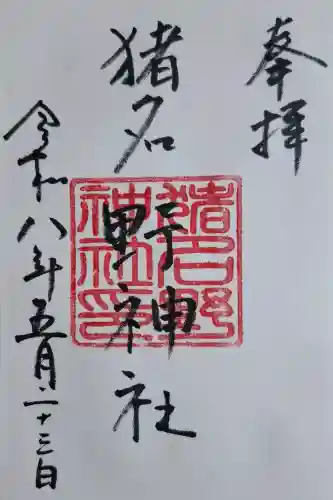 奉拝
猪名野神社
猪名野神社印
令和八年五月二十三日